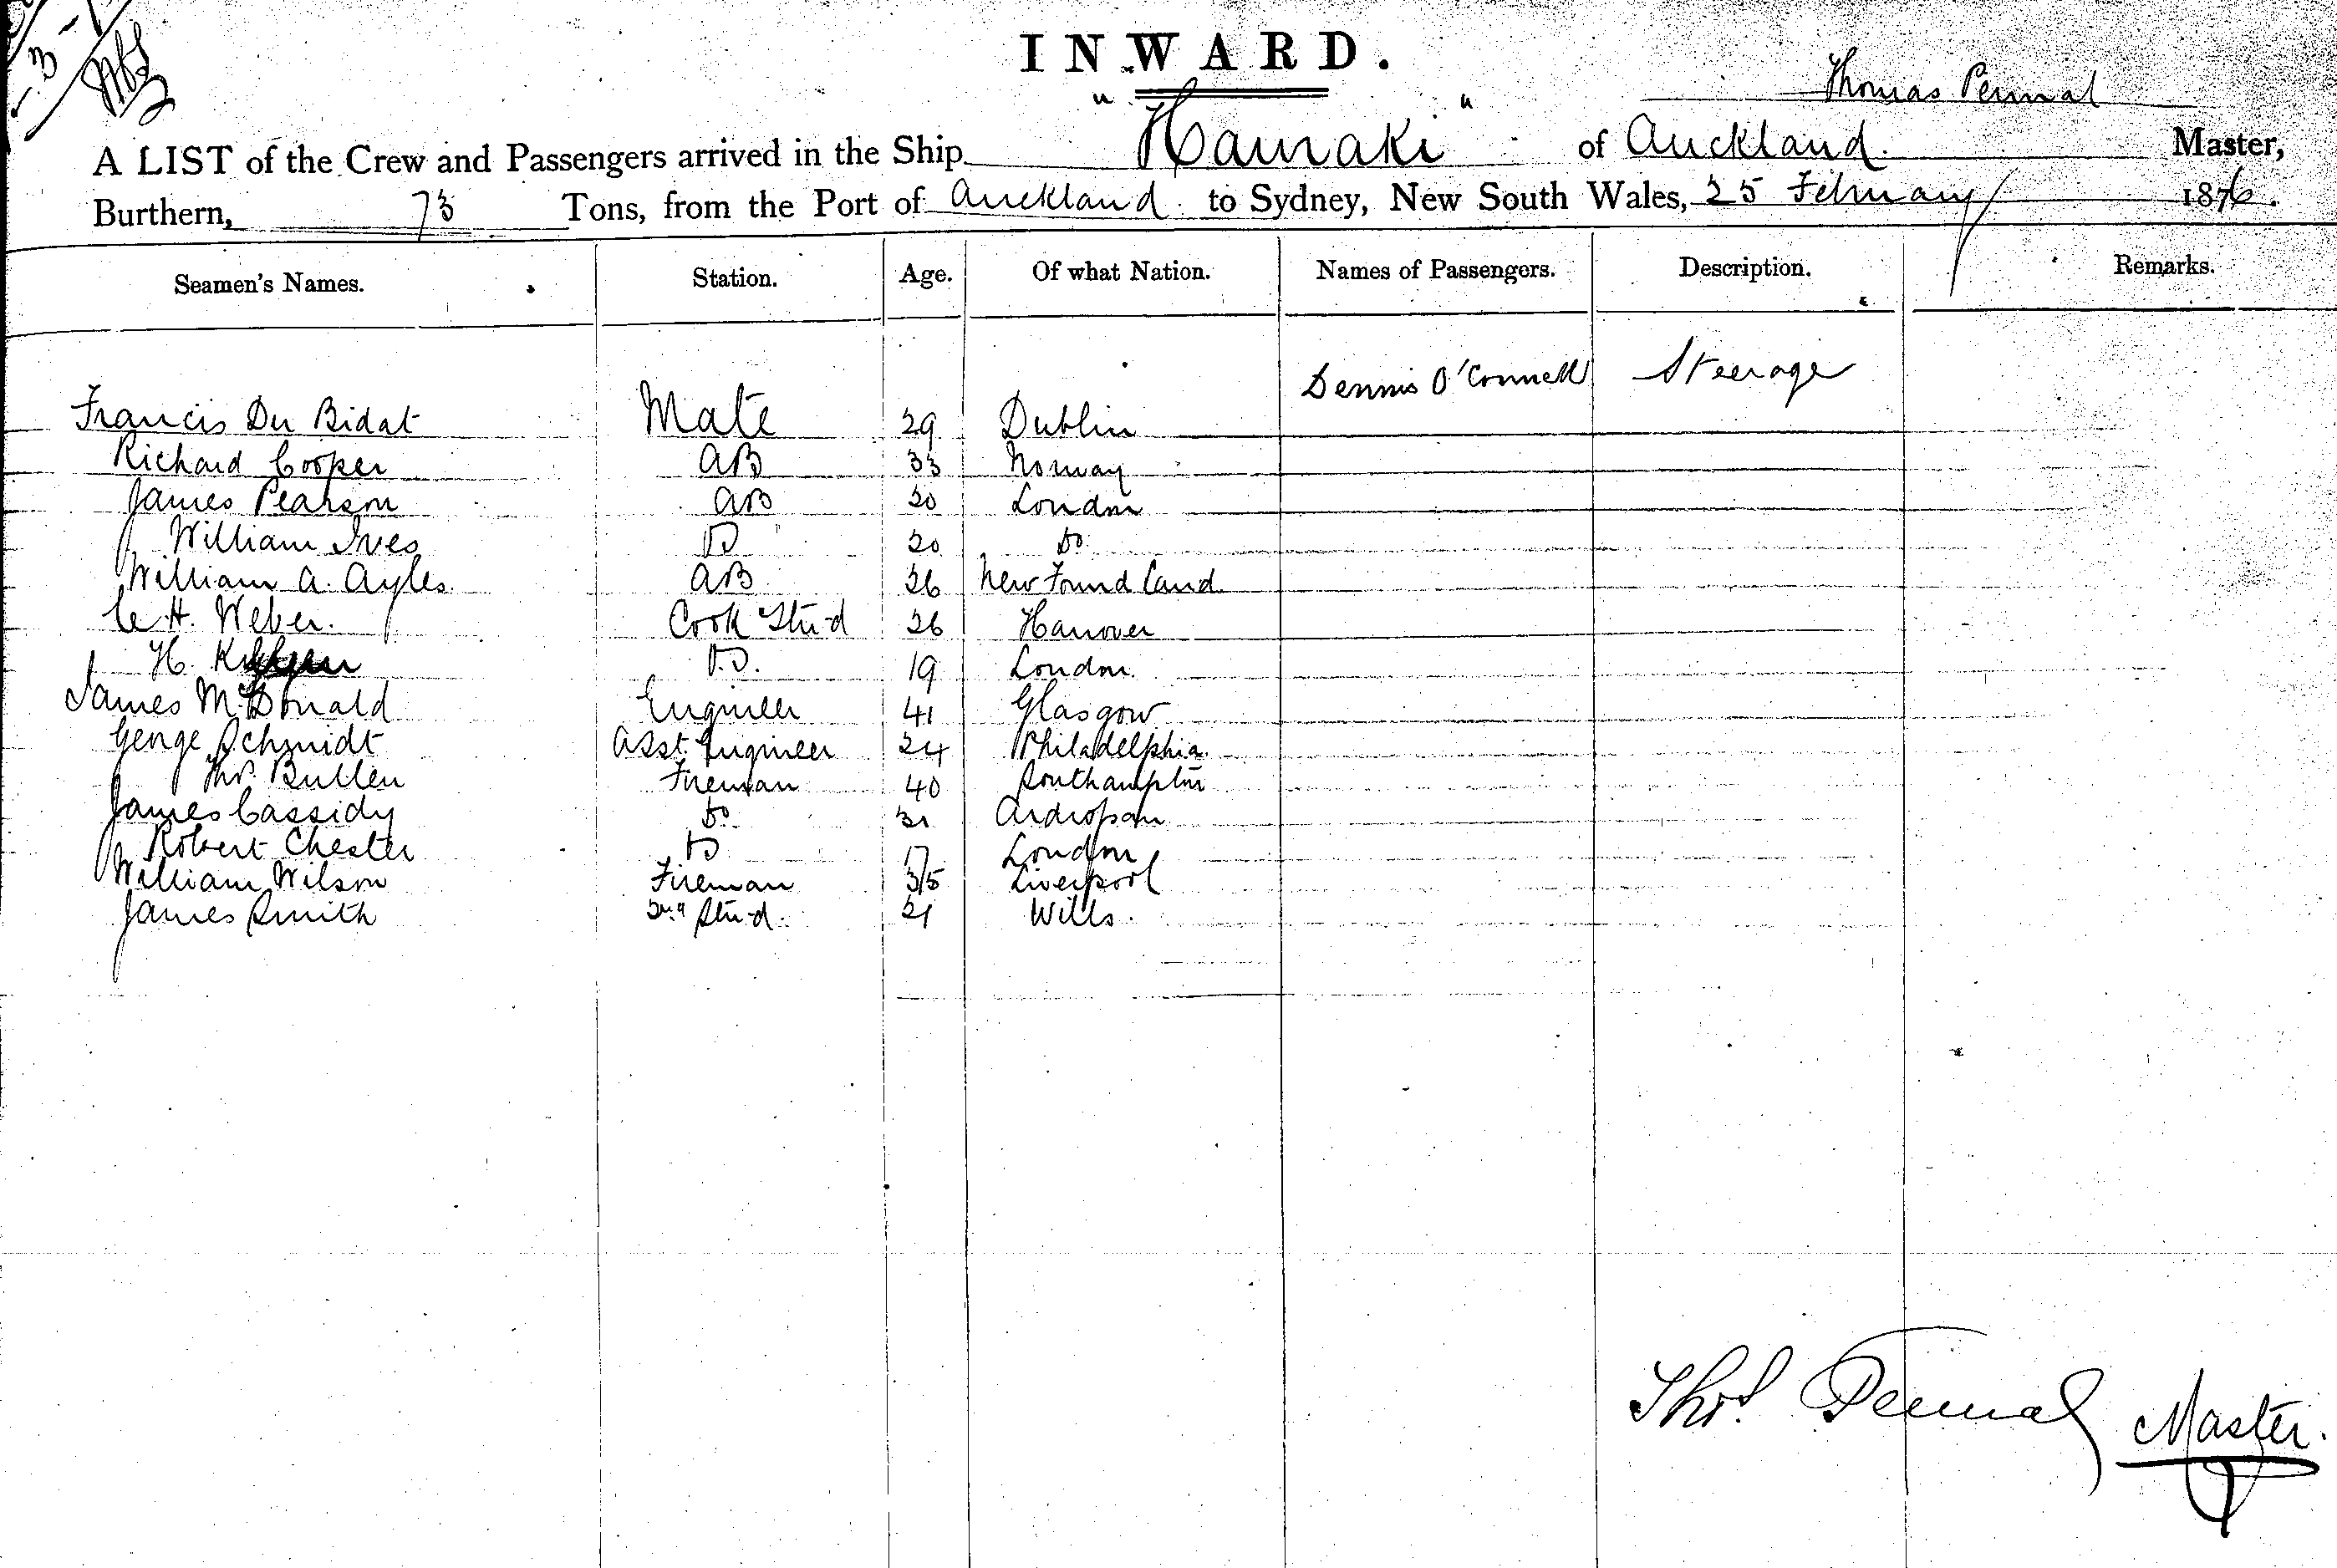 INWARD.
Thomas Pennal
A LIST of the Crew and Passengers arrived in the Ship "Hauraki" of Auckland. Master,
Burthern, 73 Tons, from the Port of Auckland to Sydney, New South Wales, 25 February 1876.
Seamen's Names. Station. Age. Of what Nation. Names of Passengers. Description. Remarks.
Dennis O'Connell Steerage
Francis Du Bidat Mate 29 Dublin
Richard Cooper AB 33 Norway
James Pearson AB 20 London
William Ives Do 20 Do
William A. Ayles. AB 26 New Found Land
C. H. Weber. Cook Stu-d 26 Hanover
H. 19 London
James McDonald Engineer 41 Glasgow
George Schmidt Asst. Engineer 24 Philadelphia
Thos. Bullen Fireman 40 Southampton
James Cassidy Do 31
Robert Chester Do 17 London
William Wilson Fireman 35 Liverpool
James Smith 2nd Stu-d. 21 Wills.
Thos. Pennal Master.